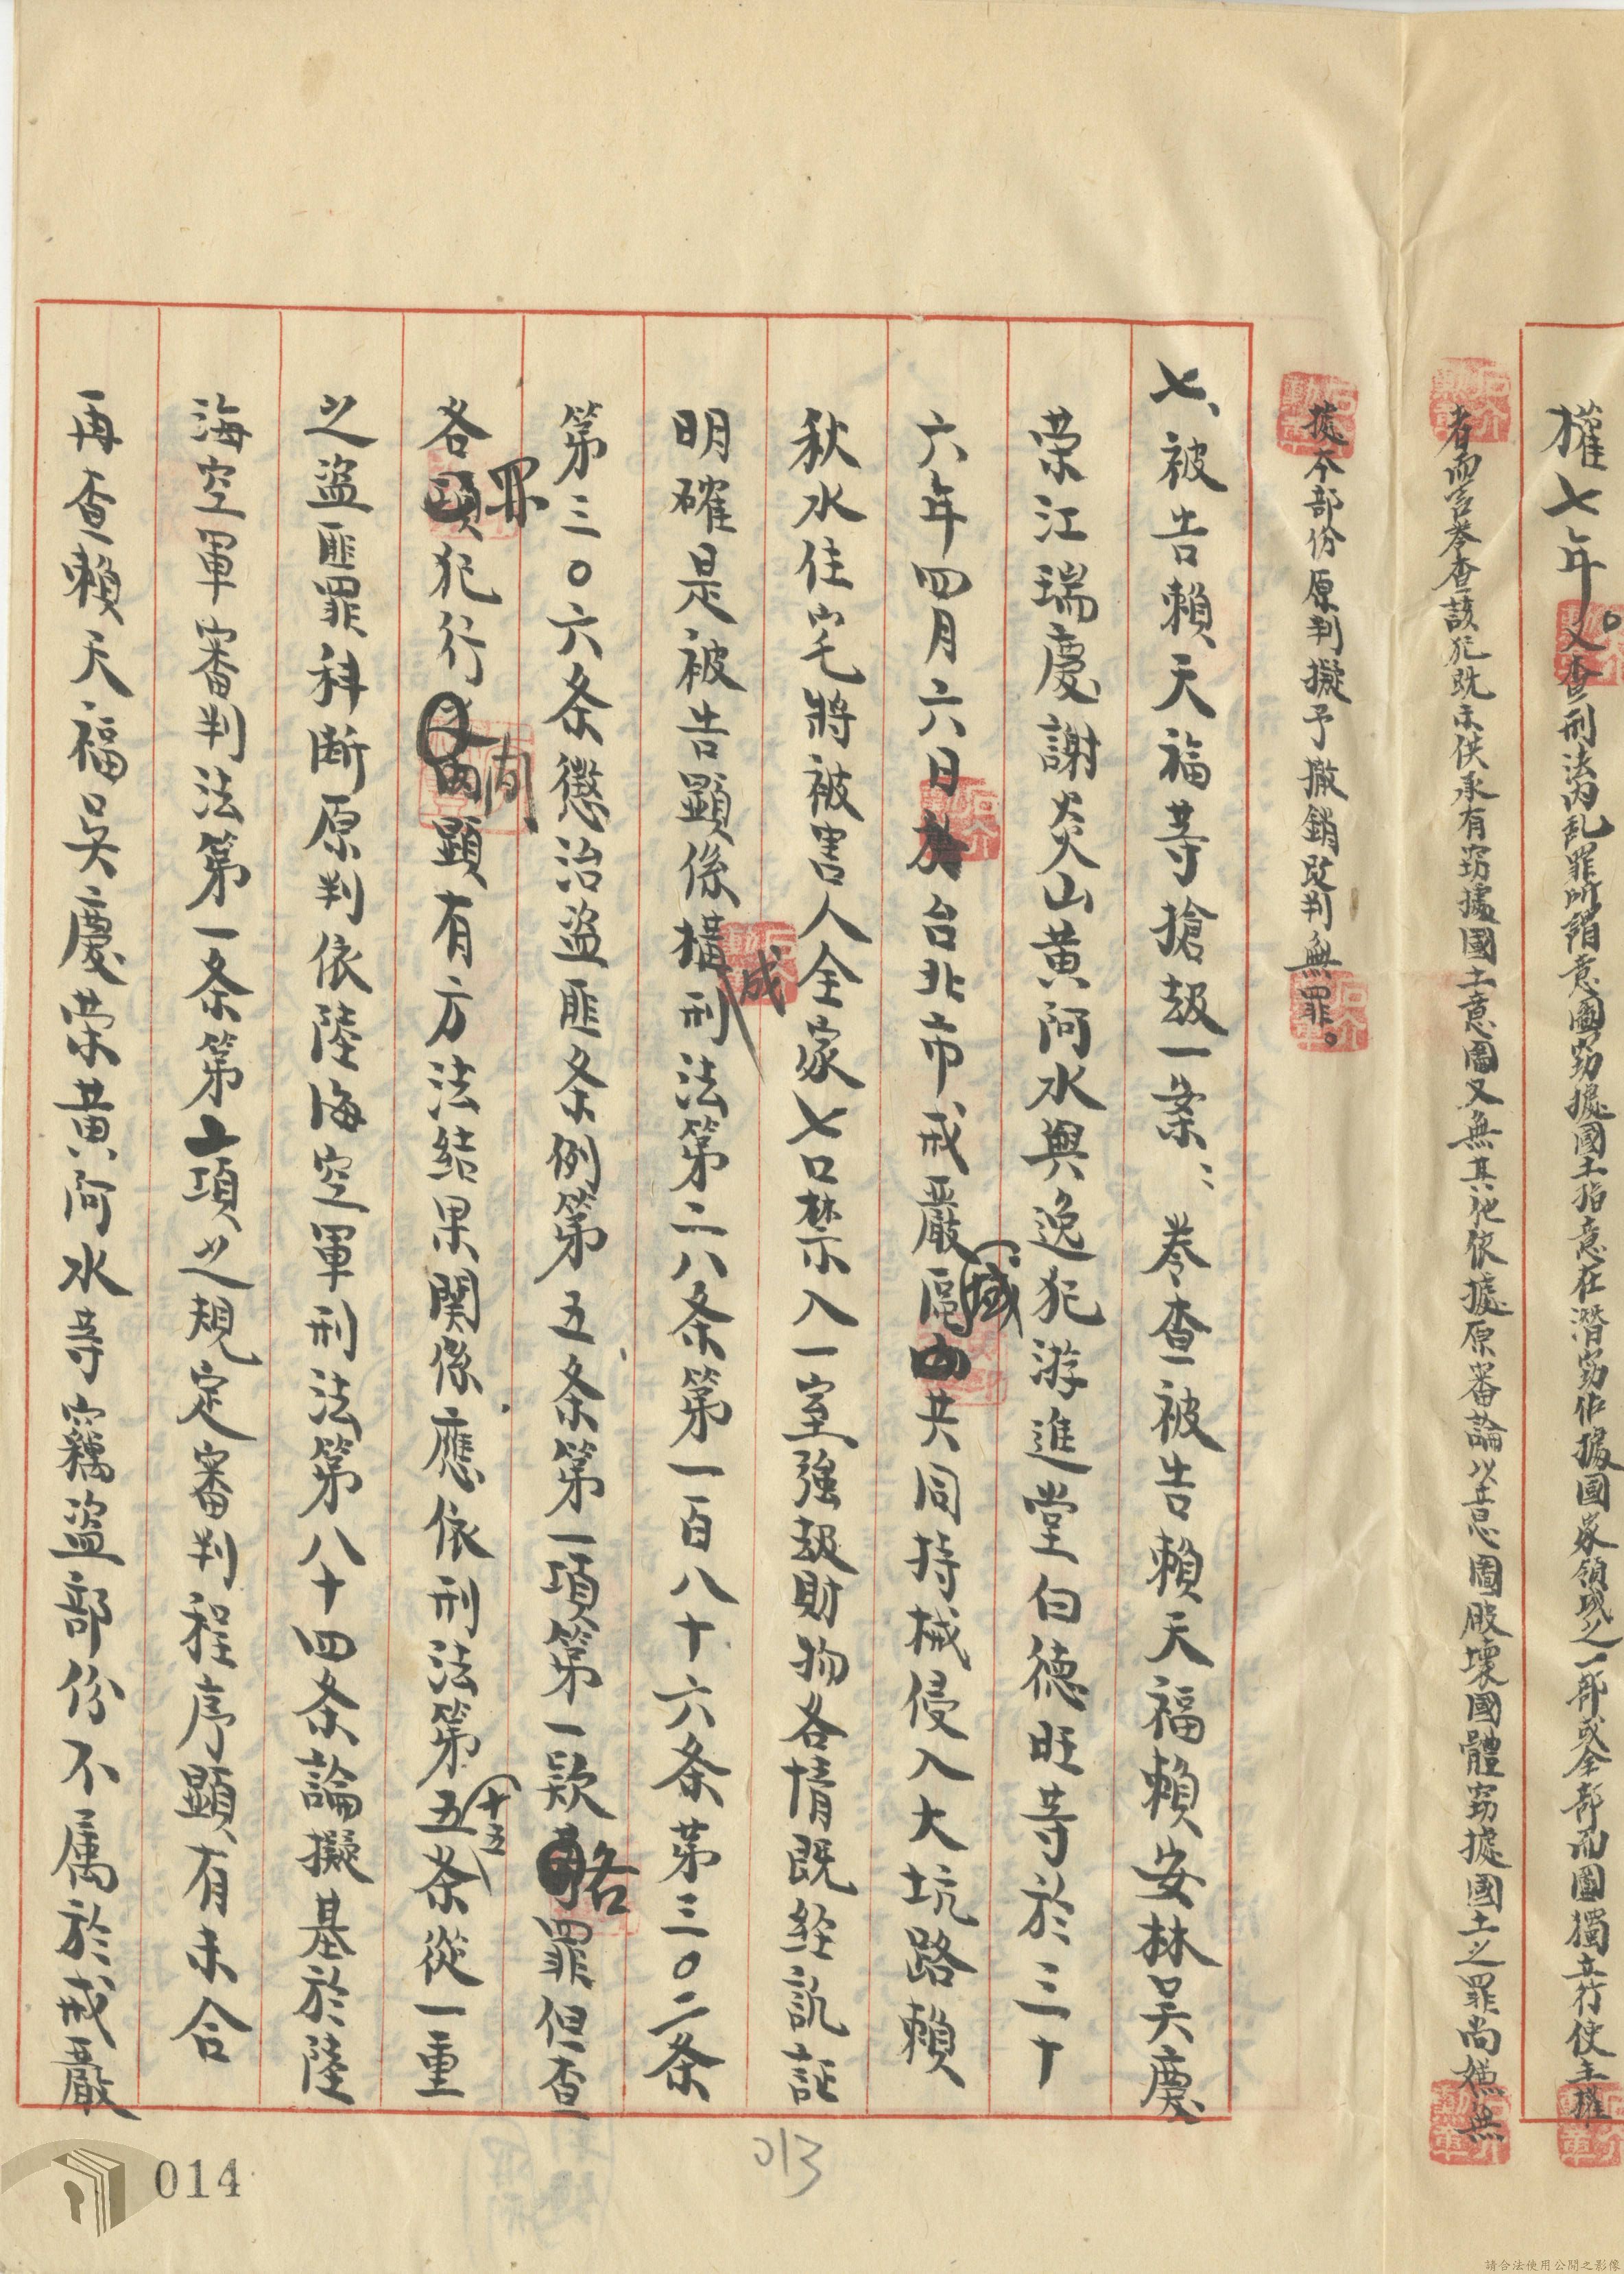 權七年。又查刑法內乱罪所謂意圖窃據國土指意在潛窃佔據國家領域之一部或全部而圖獨立行使主權
者而言卷查該犯既未供承有窃據國土意圖又無其他依據原審論以意圖破壞國體窃據國土之罪尚嫌無
據本部份原判擬予撤銷改判無罪。
七、被告賴天福等搶刼一案：卷查被告賴天福賴安林吳慶
荣江瑞慶謝炎山黄阿水與逸犯游進堂白德旺等於三十
六年四月六日於台北市戒嚴區域內共同持械侵入大坑路賴
秋水住宅將被害人全家七口禁入一室強刼財物各情既经訊証
明確是被告顯係構成刑法第二八条第一百八十六条第三〇二条
第三〇六条懲治盜匪条例第五条第一項第一欵各罪但查
各罪犯行間顯有方法結果関係應依刑法第五十五条從一重
之盜匪罪科断原判依陸海空軍刑法第八十四条論擬基於陸
海空軍審判法第一条第二項之規定審判程序顯有未合
再查賴天福吳慶荣黄阿水等竊盜部份不属於戒嚴
014
013
請合法使用公開之影像